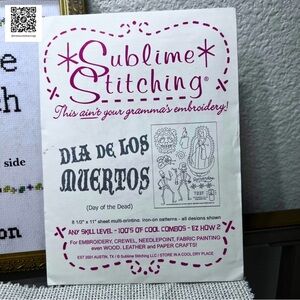 Sublime
Stitching®
This ain't your gramma's embroidery!
DIA DE LOS
MUERTOS
(Day of the Dead)
8 1/2" x 11" sheet multi-printing, iron-on patterns - all designs shown
ANY SKILL LEVEL - 100'S OF COOL COMBOS - EZ HOW 2
For EMBROIDERY, CREWEL, NEEDLEPOINT, FABRIC PAINTING
even WOOD, LEATHER and PAPER CRAFTS!
EST 2001 AUSTIN, TX / © Sublime Stitching LLC / STORE IN A COOL DRY PLACE
e
th
side
on